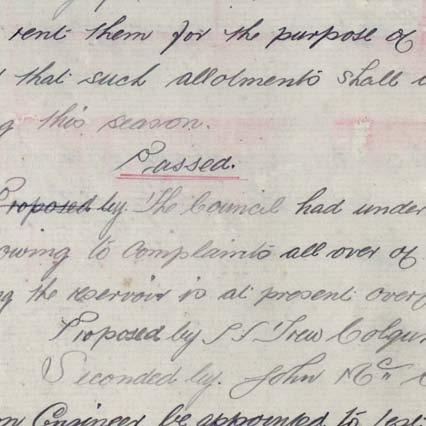 rent them for the purpose of
that such allotments shall
this season.
Passed.
Proposed by The Council had under
owing to Complaints all over of
the reservoir is at present
Proposed by
Seconded by. John Mc
Engineer be appointed to